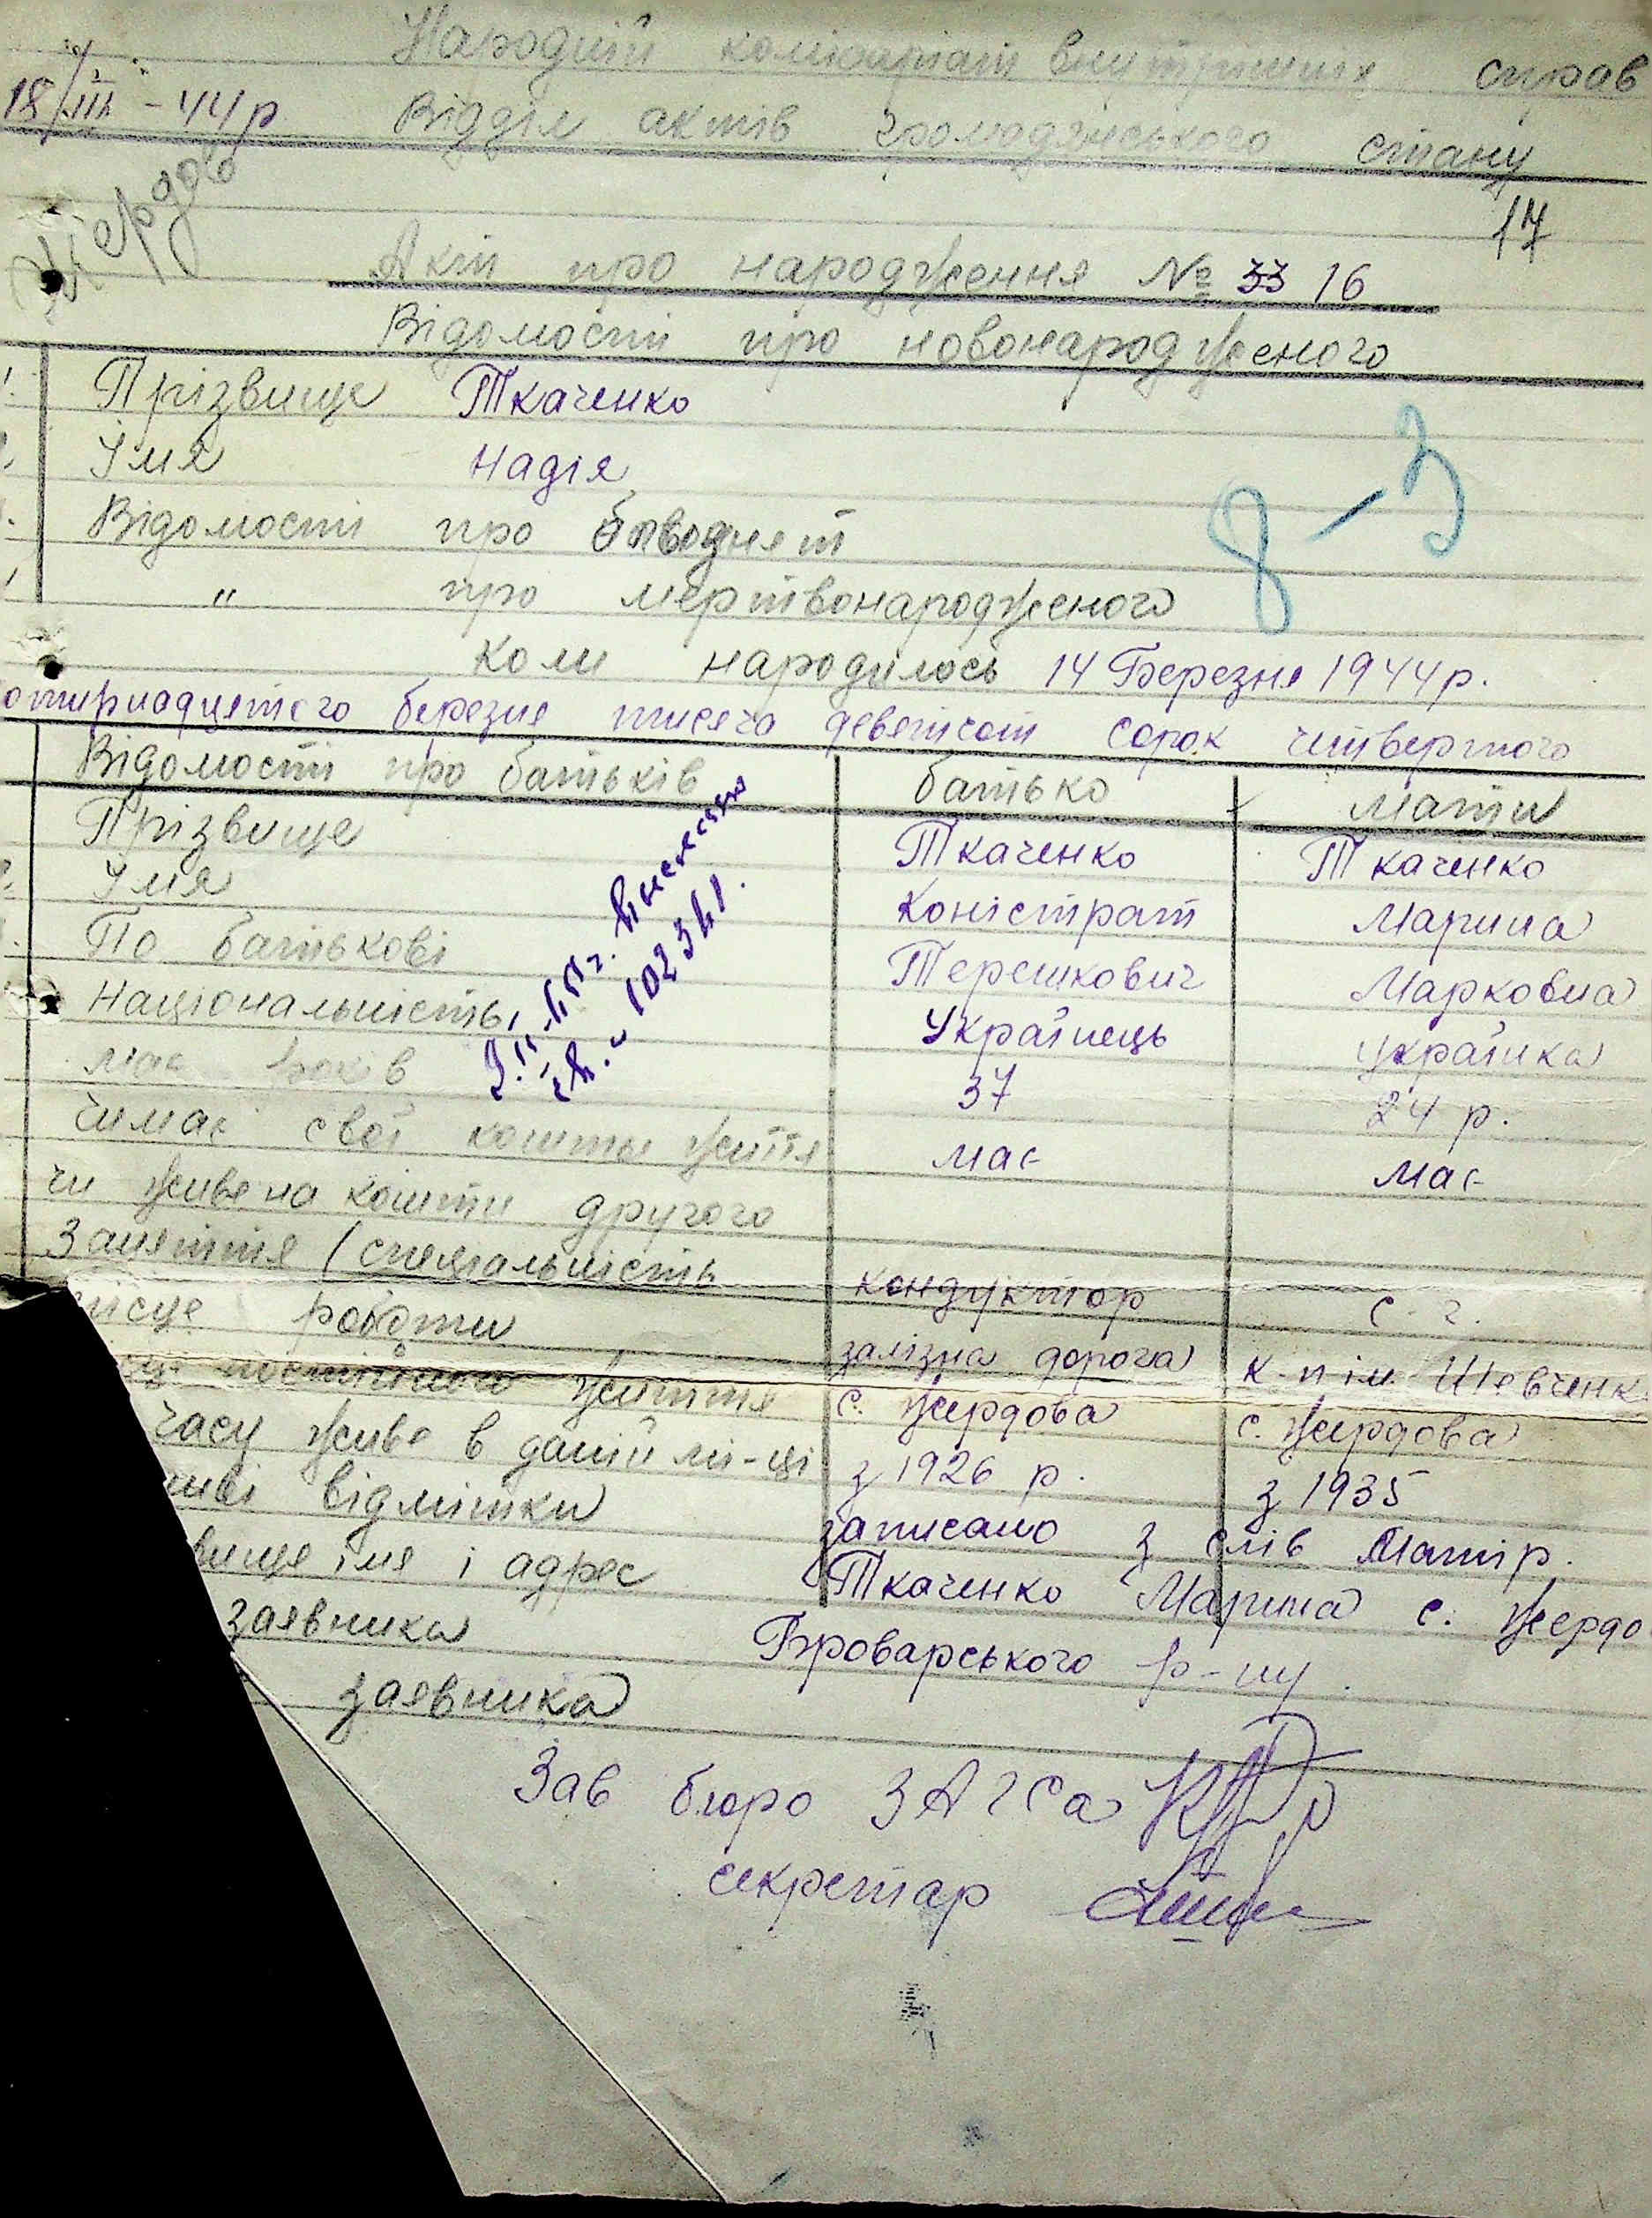 Народній комісаріат внутрішніх справ
18/III - 44 р. Відділ актів громадянського стану
17
Акт про народження № 33 16
Відомості про новонародженого
Прізвище Ткаченко
Імя Надія
8-3
Відомості про близнят
" про мертвонародженого
Коли народилось 14 Березня 1944 р.
отирнадцятого березня тисяча девятсот сорок четвертого
Відомості про батьків батько мати
Прізвище Ткаченко Ткаченко
Імя Коністрат Марина
По батькові Терешкович Марковна
Національність Українець українка
має років 37 24 р.
чи має свої кошти життя має має
чи живе на кошти другого
Заняття (спеціальність кондуктор с-г.
місце роботи залізна дорога к-п ім. Шевченк
постійного життя с. Жердова с. Жердова
часу живе в даній мі-ці з 1926 р. з 1935
відмітки записано з слів матір.
вище імя і адрес Ткаченко Марина с. Жердо
заявника Броварського р-ну.
заявника
Зав бюро ЗАГСа
секретар